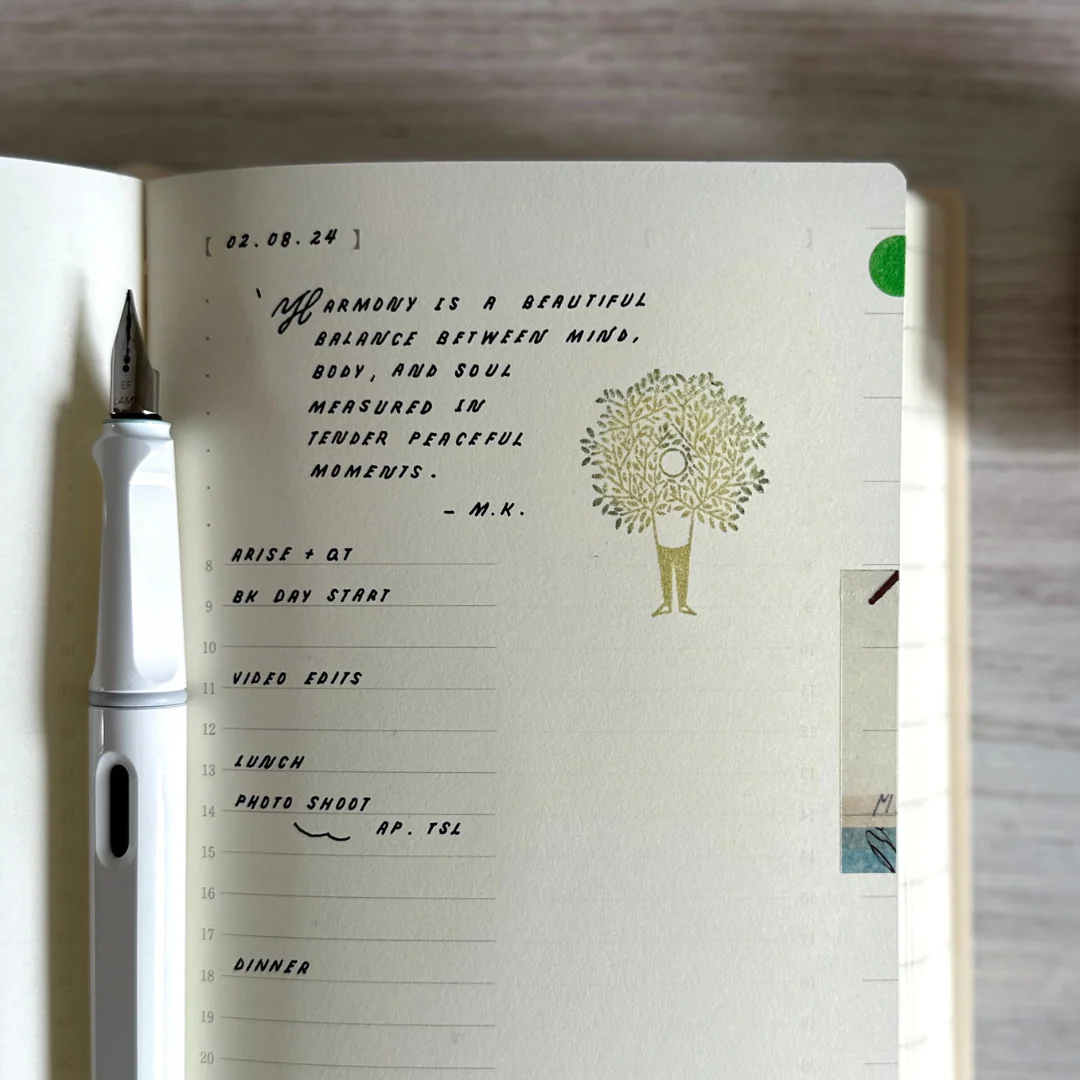 [ 02.08.24 ]
'HARMONY IS A BEAUTIFUL
BALANCE BETWEEN MIND,
BODY, AND SOUL
MEASURED IN
TENDER PEACEFUL
MOMENTS.
- M.K.
8 ARISE + QT
9 BK DAY START
10
11 VIDEO EDITS
12
13 LUNCH
14 PHOTO SHOOT
AP. TSL
15
16
17
18 DINNER
19
20
EF
LAMY
M.